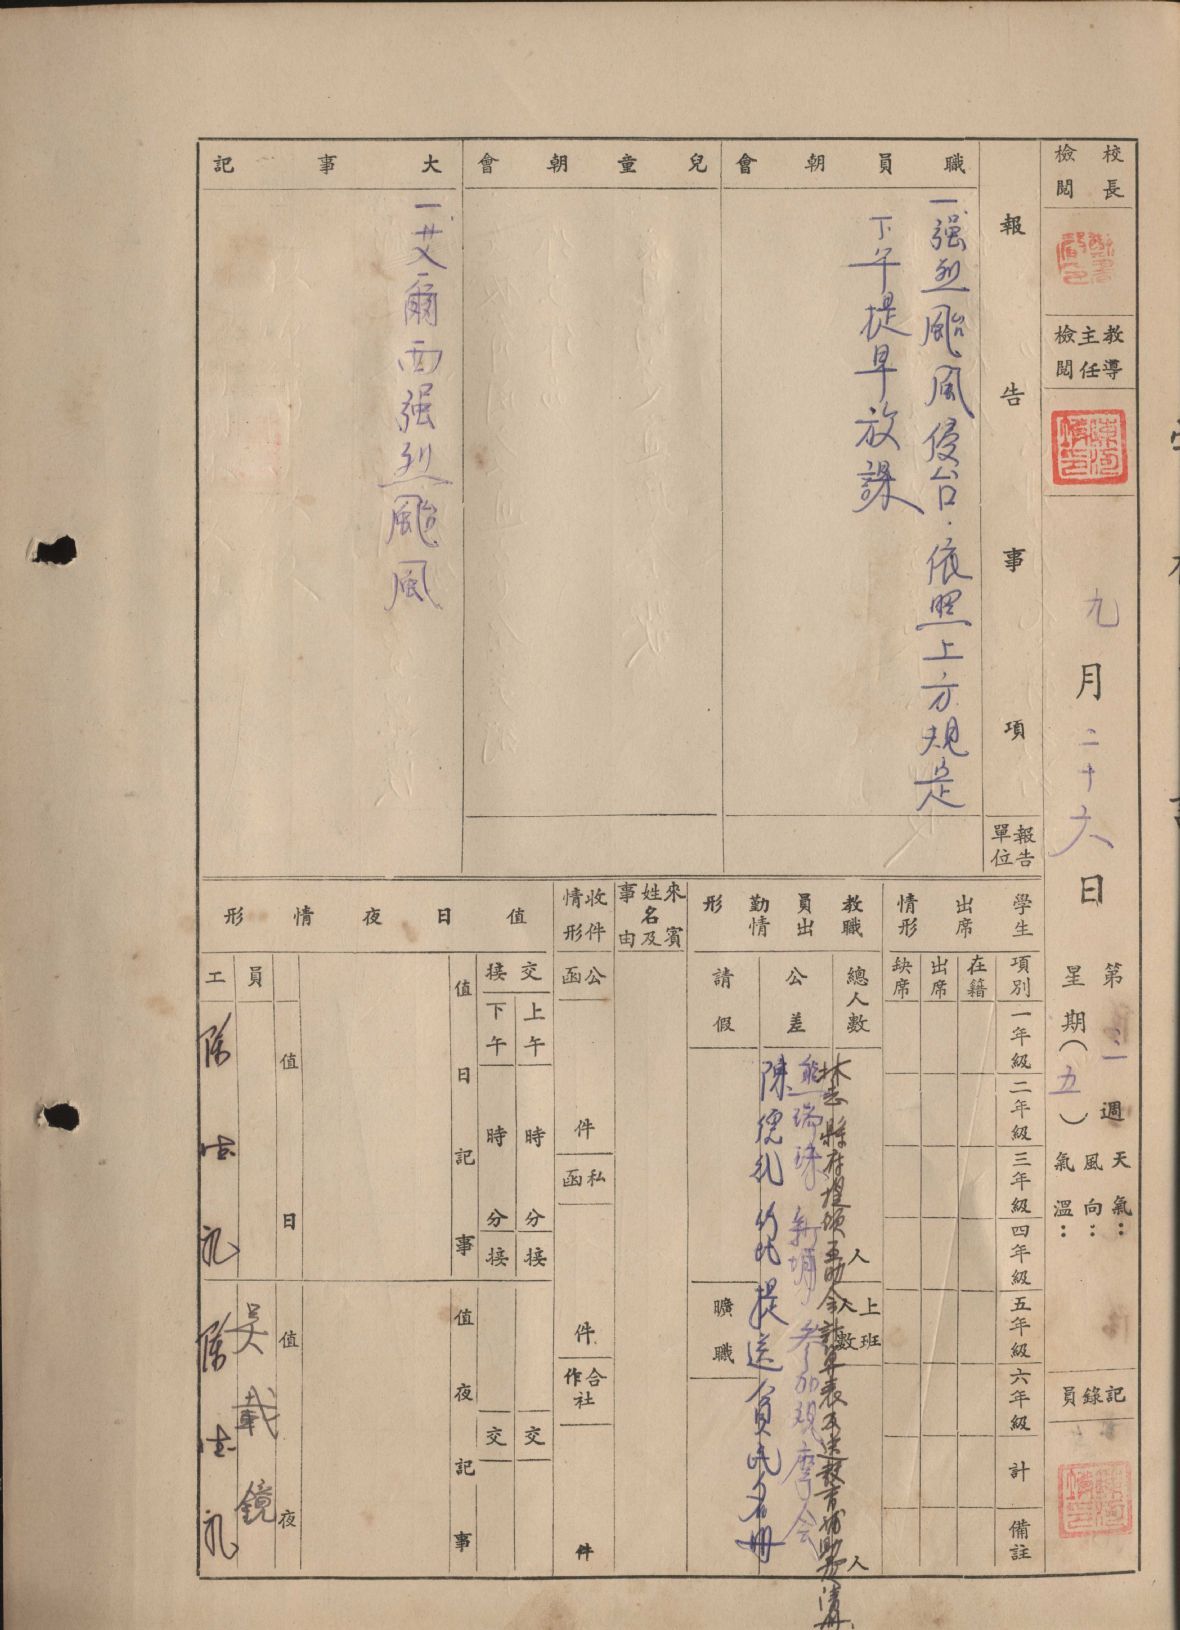 校長
檢閱
教導
主任
檢閱
九月二十六日
第一週
星期(五)
天氣：
風向：
氣溫：
記錄員
報告事項
報告
單位
職員朝會
一、強烈颱風侵台．依照上方規定
下午提早放課
兒童朝會
大事記
一、艾爾西強烈颱風
學生
出席
情形
項別
一年級
二年級
三年級
四年級
五年級
六年級
計
備註
在籍
出席
缺席
教職
員出
勤情
形
總人數
人
上班
人數
人
林志 縣府提領互助會計算表及送教育補助費清冊
公差
熊瑞珠 新埔 參加觀摩會
陳德礼 竹北 提送人員民名冊
請假
曠職
來賓
姓名及
事由
收件
情形
公函
件
私函
件
合作社
件
值日夜情形
交接
上午
時
分
接
交
下午
時
分
接
交
值日記事
值夜記事
值日
值夜
員
吳載鏡
工